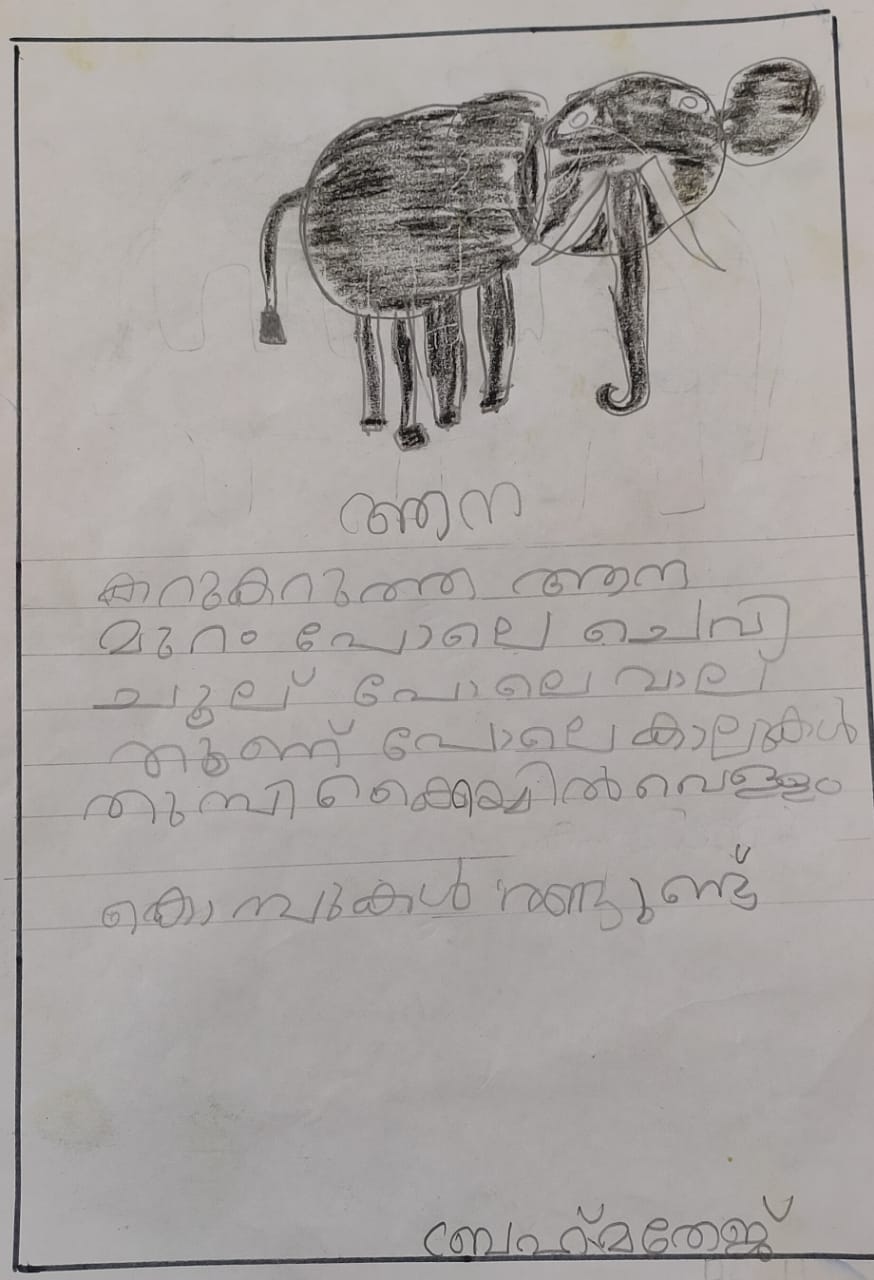 ആന
കറുകറുത്ത ആന
മുറം പോലെ ചെവി
ചൂല് പോലെ വാല്
തൂണ് പോലെ കാലുകൾ
തുമ്പി കൈയ്യിൽ വെള്ളം
കൊമ്പുകൾ രണ്ടുണ്ട്